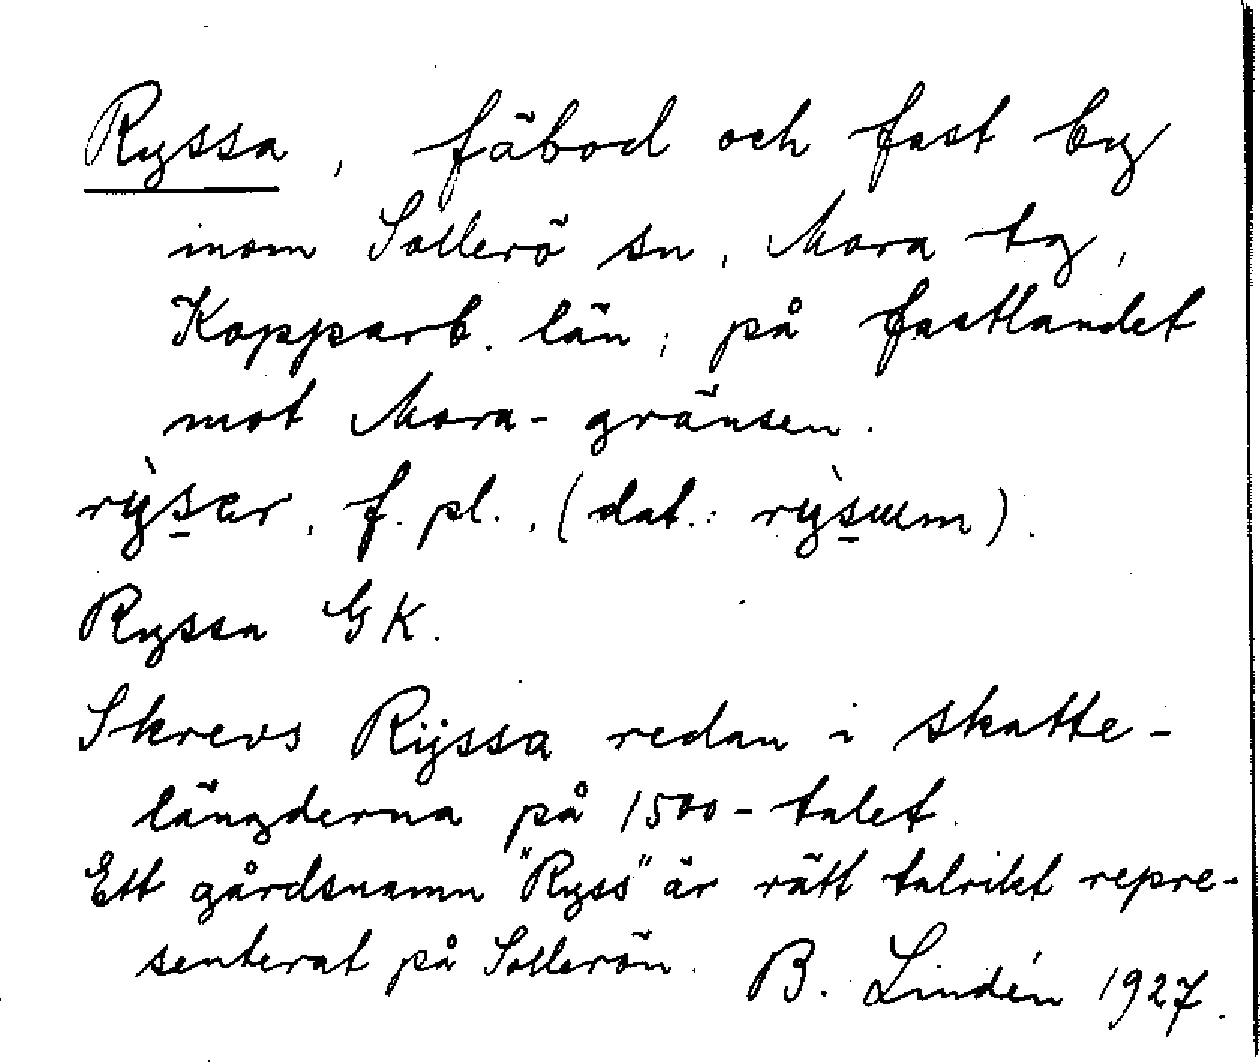 Ryssa, fäbod och fast by
inom Sollerö sn, Mora tg,
Kopparb. län; på fastlandet
mot Mora-gränsen.
rỳsar, f. pl., (dat.: rỳsum).
Ryssa GK.
Skrevs Rÿssa redan i skatte-
längderna på 1500-talet.
Ett gårdsnamn "Ryss" är rätt talrikt repre-
senterat på Sollerön. B. Lindén 1927.